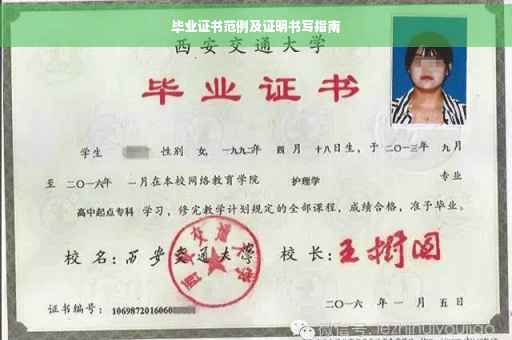 毕业证书范例及证明书写指南
西安交通大学
毕业证书
学生 性别 女, 一九九二年 四 月 十八日生, 于 二〇一三年 九月
至 二〇一六年 一月在本校网络教育学院 护理学 专业
高中起点专科 学习, 修完教学计划规定的全部课程, 成绩合格, 准予毕业。
校 名: 西安交通大学 校 长: 王树国
西安交通大学
证书编号: 1069872016060
二〇一六 年 一 月 五 日
微信号: lezhihuiyoujiao